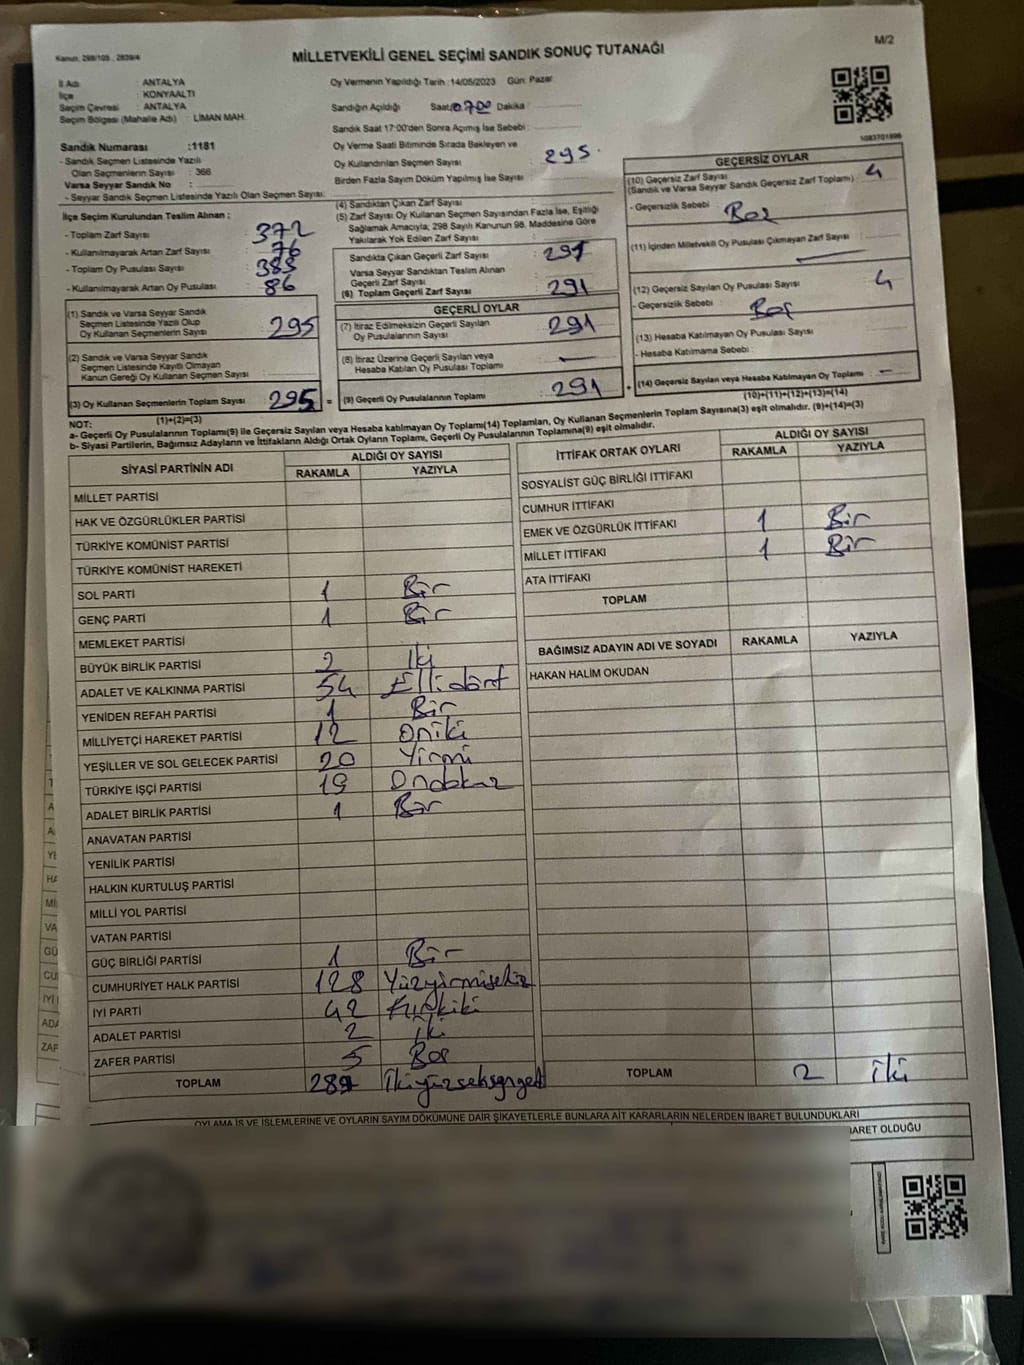 Kanun: 298/105 , 2839/4
MİLLETVEKİLİ GENEL SEÇİMİ SANDIK SONUÇ TUTANAĞI
M/2
İl Adı : ANTALYA
İlçe : KONYAALTI
Seçim Çevresi : ANTALYA
Seçim Bölgesi (Mahalle Adı) : LİMAN MAH.
Sandık Numarası :1181
- Sandık Seçmen Listesinde Yazılı
Olan Seçmenlerin Sayısı : 366
Varsa Seyyar Sandık No :
- Seyyar Sandık Seçmen Listesinde Yazılı Olan Seçmen Sayısı:
Oy Vermenin Yapıldığı Tarih :14/05/2023 Gün: Pazar
Sandığın Açıldığı Saat: Dakika :
Sandık Saat 17:00'den Sonra Açımış İse Sebebi :
Oy Verme Saati Bitiminde Sırada Bekleyen ve
Oy Kullandırılan Seçmen Sayısı : 295
Birden Fazla Sayım Döküm Yapılmış İse Sayısı :
1083701896
İlçe Seçim Kurulundan Teslim Alınan :
- Toplam Zarf Sayısı : 372
- Kullanılmayarak Artan Zarf Sayısı : 76
- Toplam Oy Pusulası Sayısı : 383
- Kullanılmayarak Artan Oy Pusulası : 86
(1) Sandık ve Varsa Seyyar Sandık
Seçmen Listesinde Yazılı Olup
Oy Kullanan Seçmenlerin Sayısı : 295
(2) Sandık ve Varsa Seyyar Sandık
Seçmen Listesinde Kayıtlı Olmayan
Kanun Gereği Oy Kullanan Seçmen Sayısı :
(3) Oy Kullanan Seçmenlerin Toplam Sayısı : 295
(1)+(2)=(3)
(4) Sandıktan Çıkan Zarf Sayısı :
(5) Zarf Sayısı Oy Kullanan Seçmen Sayısından Fazla İse, Eşitliği
Sağlamak Amacıyla; 298 Sayılı Kanunun 98. Maddesine Göre
Yakılarak Yok Edilen Zarf Sayısı :
Sandıkta Çıkan Geçerli Zarf Sayısı : 291
Varsa Seyyar Sandıktan Teslim Alınan
Geçerli Zarf Sayısı :
(6) Toplam Geçerli Zarf Sayısı : 291
GEÇERLİ OYLAR
(7) İtiraz Edilmeksizin Geçerli Sayılan
Oy Pusulalarının Sayısı : 291
(8) İtiraz Üzerine Geçerli Sayılan veya
Hesaba Katılan Oy Pusulası Toplamı : —
= (9) Geçerli Oy Pusulalarının Toplamı : 291
GEÇERSİZ OYLAR
(10) Geçersiz Zarf Sayısı : 4
(Sandık ve Varsa Seyyar Sandık Geçersiz Zarf Toplamı)
- Geçersizlik Sebebi : Boş
(11) İçinden Milletvekili Oy Pusulası Çıkmayan Zarf Sayısı : —
(12) Geçersiz Sayılan Oy Pusulası Sayısı : 4
- Geçersizlik Sebebi : Boş
(13) Hesaba Katılmayan Oy Pusulası Sayısı :
- Hesaba Katılmama Sebebi :
+ (14) Geçersiz Sayılan veya Hesaba Katılmayan Oy Toplamı : —
(10)+(11)+(12)+(13)=(14)
NOT:
a- Geçerli Oy Pusulalarının Toplamı(9) ile Geçersiz Sayılan veya Hesaba katılmayan Oy Toplamı(14) Toplamları, Oy Kullanan Seçmenlerin Toplam Sayısına(3) eşit olmalıdır. (9)+(14)=(3)
b- Siyasi Partilerin, Bağımsız Adayların ve İttifakların Aldığı Ortak Oyların Toplamı, Geçerli Oy Pusulalarının Toplamına(9) eşit olmalıdır.
SİYASİ PARTİNİN ADI ALDIĞI OY SAYISI
RAKAMLA YAZIYLA
MİLLET PARTİSİ
HAK VE ÖZGÜRLÜKLER PARTİSİ
TÜRKİYE KOMÜNİST PARTİSİ
TÜRKİYE KOMÜNİST HAREKETİ
SOL PARTİ 1 Bir
GENÇ PARTİ 1 Bir
MEMLEKET PARTİSİ
BÜYÜK BİRLİK PARTİSİ 2 İki
ADALET VE KALKINMA PARTİSİ 54 Ellidört
YENİDEN REFAH PARTİSİ 1 Bir
MİLLİYETÇİ HAREKET PARTİSİ 12 Oniki
YEŞİLLER VE SOL GELECEK PARTİSİ 20 Yirmi
TÜRKİYE İŞÇİ PARTİSİ 19 Ondokuz
ADALET BİRLİK PARTİSİ 1 Bir
ANAVATAN PARTİSİ
YENİLİK PARTİSİ
HALKIN KURTULUŞ PARTİSİ
MİLLİ YOL PARTİSİ
VATAN PARTİSİ
GÜÇ BİRLİĞİ PARTİSİ 1 Bir
CUMHURİYET HALK PARTİSİ 128 Yüzyirmisekiz
İYİ PARTİ 42 Kırkiki
ADALET PARTİSİ 2 İki
ZAFER PARTİSİ 5 Beş
TOPLAM 289
İTTİFAK ORTAK OYLARI ALDIĞI OY SAYISI
RAKAMLA YAZIYLA
SOSYALİST GÜÇ BİRLİĞİ İTTİFAKI
CUMHUR İTTİFAKI
EMEK VE ÖZGÜRLÜK İTTİFAKI 1 Bir
MİLLET İTTİFAKI 1 Bir
ATA İTTİFAKI
TOPLAM
BAĞIMSIZ ADAYIN ADI VE SOYADI RAKAMLA YAZIYLA
HAKAN HALİM OKUDAN
TOPLAM 2 iki
OYLAMA İŞ VE İŞLEMLERİNE VE OYLARIN SAYIM DÖKÜMÜNE DAİR ŞİKAYETLERLE BUNLARA AİT KARARLARIN NELERDEN İBARET BULUNDUKLARI
BARET OLDUĞU